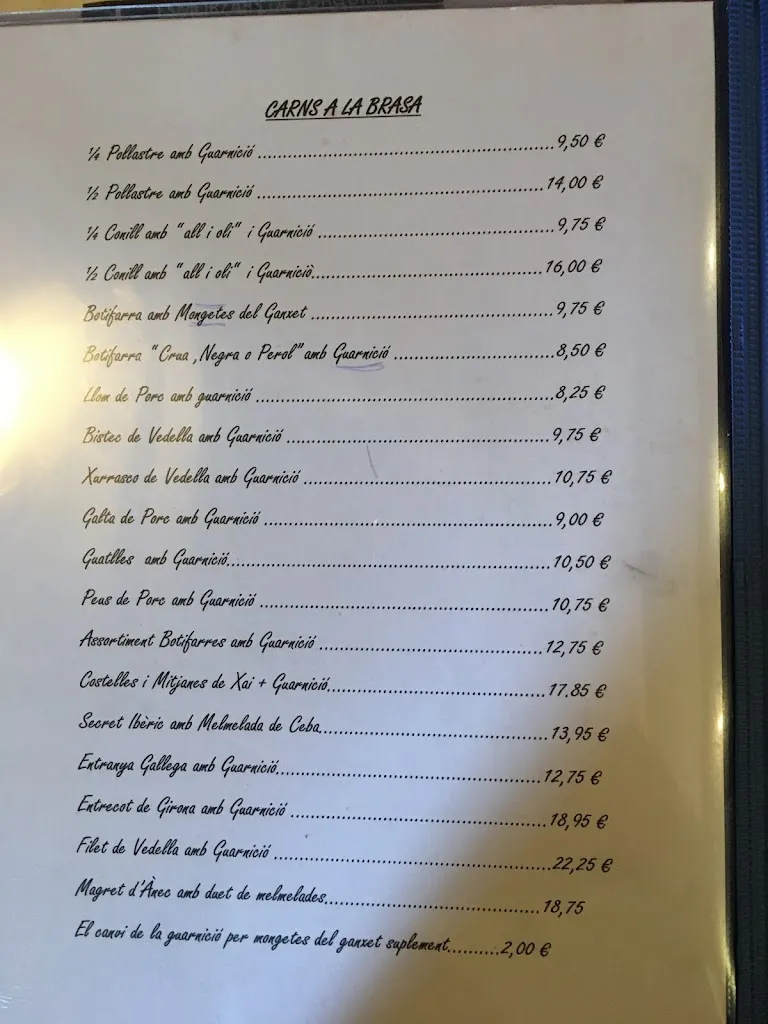 CARNS A LA BRASA
¼ Pollastre amb Guarnició ........ 9,50 €
½ Pollastre amb Guarnició ........ 14,00 €
¼ Conill amb "all i oli" i Guarnició ........ 9,75 €
½ Conill amb "all i oli" i Guarnició ........ 16,00 €
Botifarra amb Mongetes del Ganxet ........ 9,75 €
Botifarra "Crua ,Negra o Perol" amb Guarnició ........ 8,50 €
Llom de Porc amb guarnició ........ 8,25 €
Bistec de Vedella amb Guarnició ........ 9,75 €
Xurrasco de Vedella amb Guarnició ........ 10,75 €
Galta de Porc amb Guarnició ........ 9,00 €
Guatlles amb Guarnició ........ 10,50 €
Peus de Porc amb Guarnició ........ 10,75 €
Assortiment Botifarres amb Guarnició ........ 12,75 €
Costelles i Mitjanes de Xai + Guarnició ........ 17.85 €
Secret Ibèric amb Melmelada de Ceba ........ 13,95 €
Entranya Gallega amb Guarnició ........ 12,75 €
Entrecot de Girona amb Guarnició ........ 18,95 €
Filet de Vedella amb Guarnició ........ 22,25 €
Magret d'Ànec amb duet de melmelades ........ 18,75
El canvi de la guarnició per mongetes del ganxet suplement ........ 2,00 €